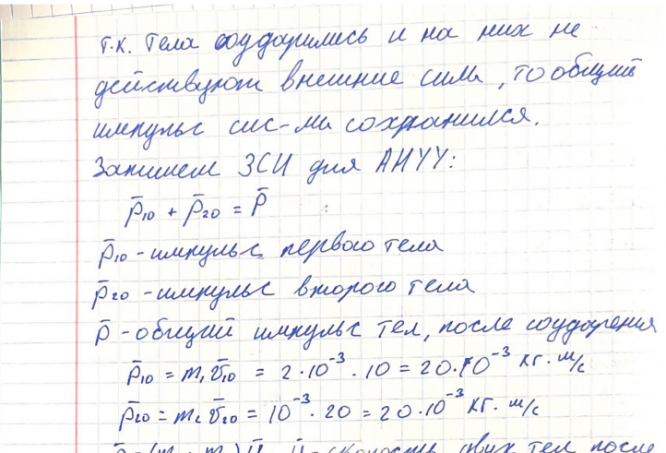 т.к. тела соударились и на них не
действуют внешние силы, то общий
импульс сис-мы сохранился.
Запишем ЗСИ для АНУУ:
p̄₁₀ + p̄₂₀ = p̄
p̄₁₀ - импульс первого тела
p̄₂₀ - импульс второго тела
p̄ - общий импульс тел, после соударения
p̄₁₀ = m₁ v̄₁₀ = 2·10⁻³ · 10 = 20·10⁻³ кг·м/с
p̄₂₀ = m₂ v̄₂₀ = 10⁻³ · 20 = 20·10⁻³ кг·м/с
скорость двух тел после